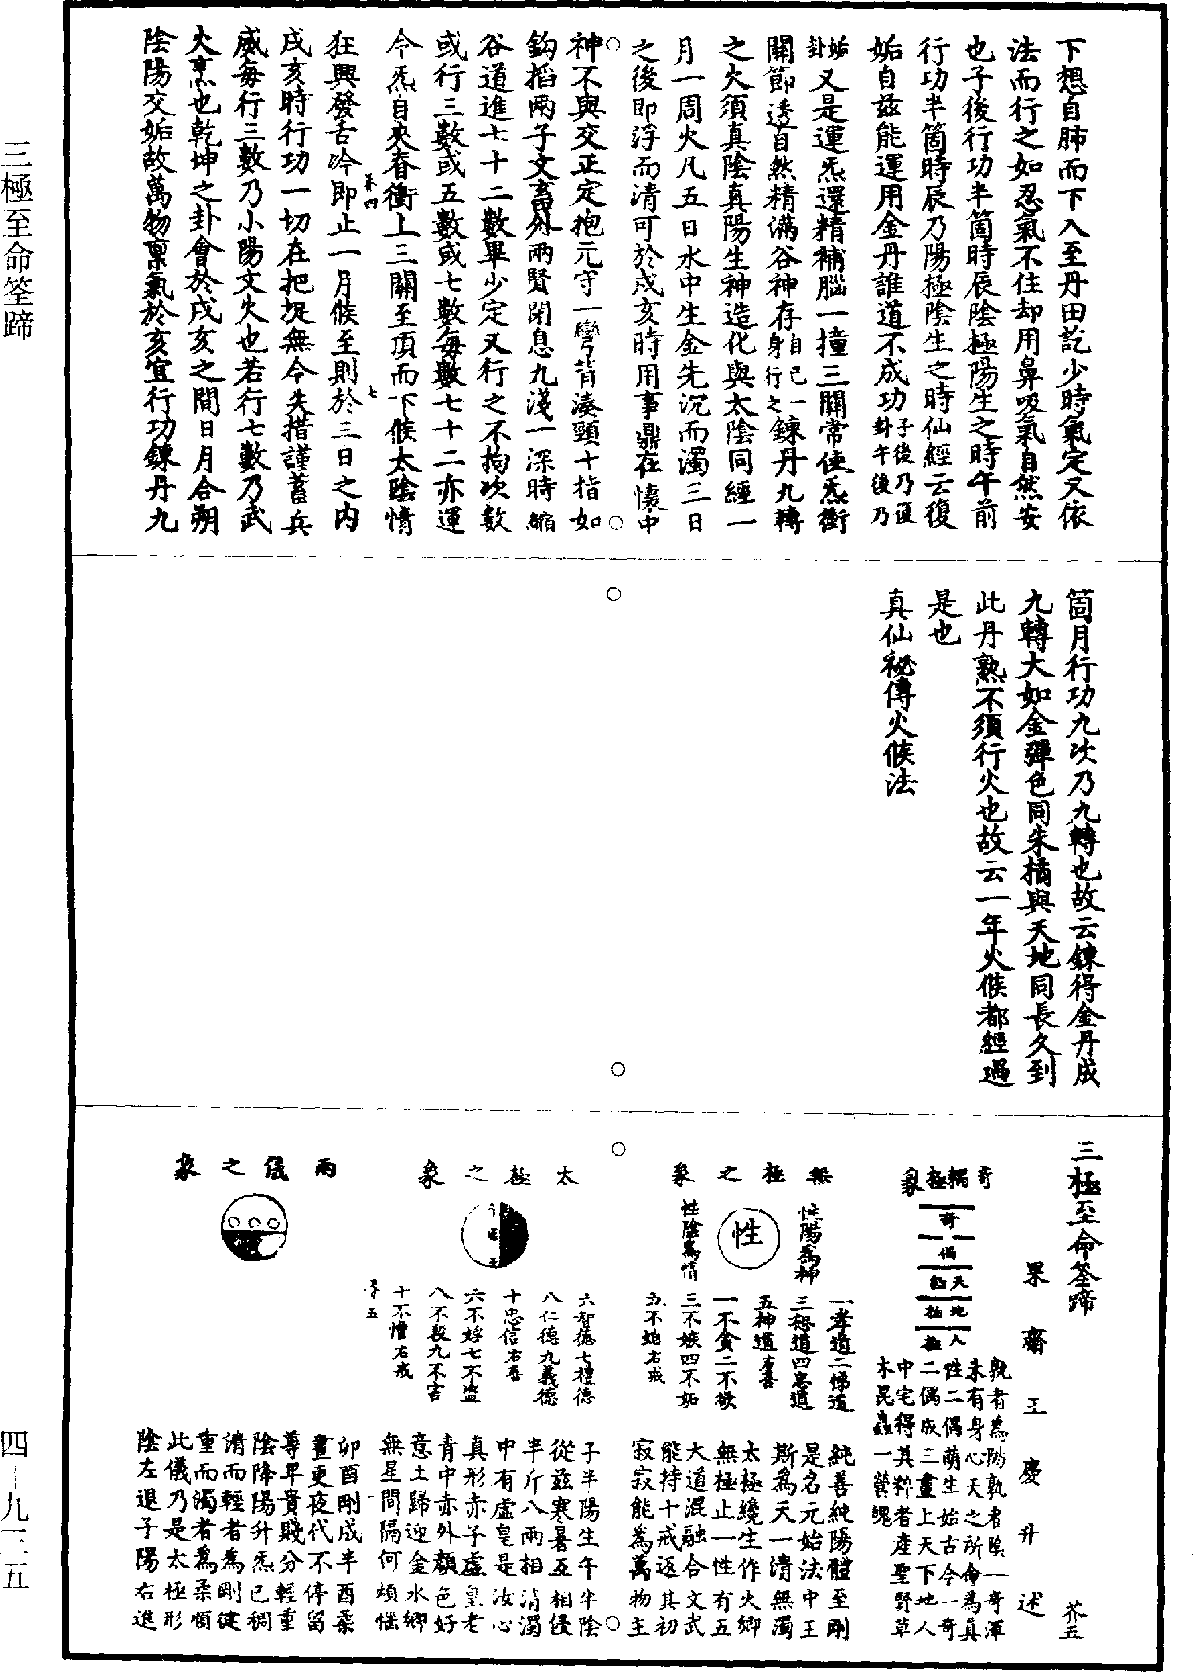 三極至命筌蹄
四—九三五
下想自肺而下入至丹田訖少時氣定又依
法而行之如忍氣不住却用鼻吸氣自然安
也子後行功半箇時辰陰極陽生之時午前
行功半箇時辰乃陽極陰生之時仙經云復
姤自兹能運用金丹誰道不成功子後乃復卦午後乃
姤卦又是運炁還精補腦一撞三關常使炁衝
關節透自然精滿谷神存自己一身行之鍊丹九轉
之火須真陰真陽生神造化與太陰同經一
月一周火凡五日水中生金先沉而濁三日
之後即浮而清可於戌亥時用事鼎在懷中
神不與交正定抱元守一彎背湊頸十指如
鈎搯兩子文畜外兩腎閉息九淺一深時縮
谷道進七十二數畢少定又行之不拘次數
或行三數或五數或七數每數七十二亦運
今炁自夾脊衝上三關至頂而下候太陰情
狂興發舌冷即止一月候至則於三日之内
戌亥時行功一切在把捉無令失措謹蓄兵
威每行三數乃小陽文火也若行七數乃武
火烹也乾坤之卦會於戌亥之間日月合朔
陰陽交姤故萬物禀氣於亥宜行功鍊丹九
箇月行功九次乃九轉也故云鍊得金丹成
九轉大如金彈色同朱橘與天地同長久到
此丹熟不須行火也故云一年火候都經過
是也
真仙祕傳火候法
三極至命筌蹄
芥五
果齋王慶升述
奇耦極象
奇
偶
天極
地極
人極
孰者為陽孰者陰一奇渾
未有身心天之所命為真
性二偶萌生始古今一奇
二偶成三畫上天下地人
中宅得其粹者產聖賢草
木昆蟲一營魄
無極之象
性陽為神
性
性陰為情
一孝道二悌道
三慈道四忠道
五神道右善
一不貪二不欲
三不嫉四不妬
五不媱右戒
純善純陽體至剛
是名元始法中王
斯為天一清無濁
太極纔生作火鄉
無極止一性有五
大道混融合文武
能持十戒返其初
寂寂能為萬物主
太極之象
六智德七禮德
八仁德九義德
十忠信右善
六不婬七不盜
八不殺九不言
十不憎右戒
芥五
子半陽生午半陰
從兹寒暑互相侵
半斤八兩相清濁
中有虛皇是汝心
真形赤子虛皇老
青中赤外顏色好
意土歸迎金水鄉
無星間隔何煩惱
兩儀之象
卯酉剛成半酉柔
晝更夜代不停留
尊卑貴賤分輕重
陰降陽升炁已稠
清而輕者為剛健
重而濁者為柔順
此儀乃是太極形
陰左退子陽右進